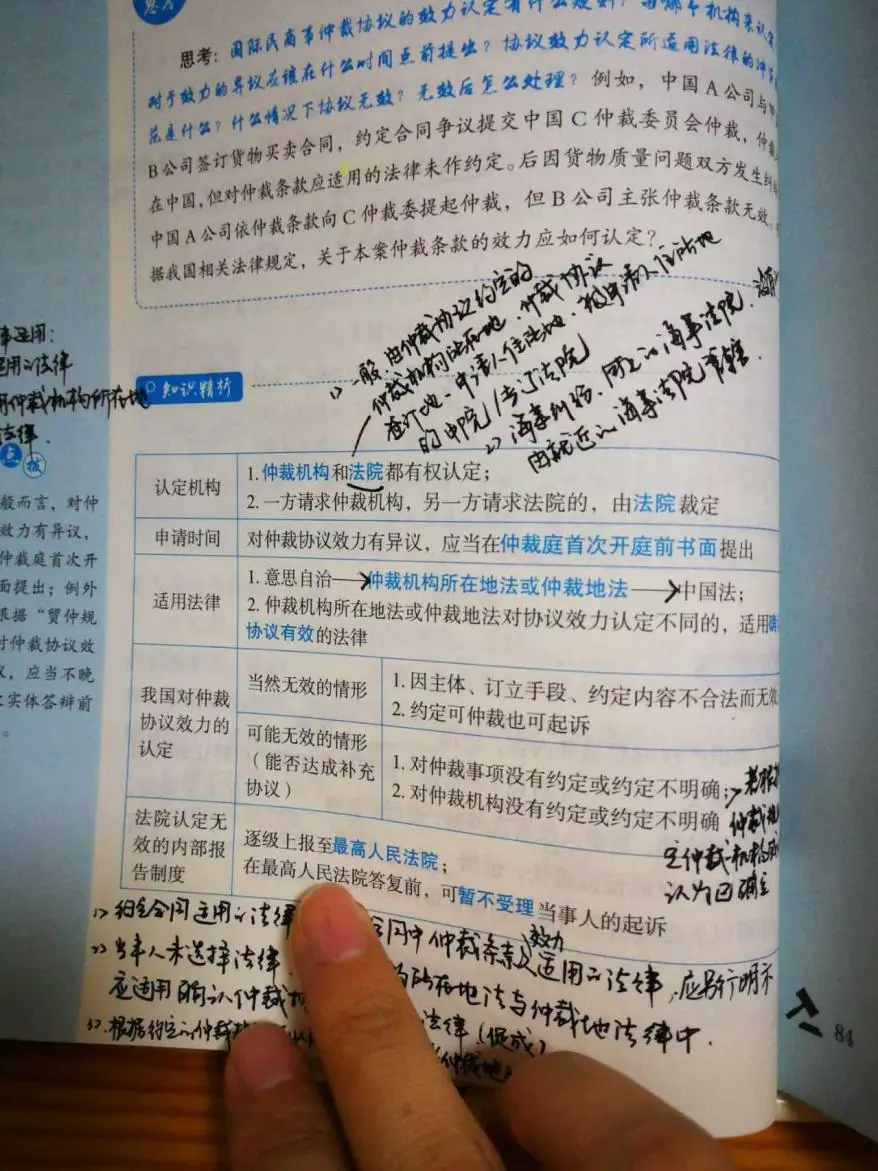 思考
思考：国际民商事仲裁协议的效力认定有什么规则？由哪个机构来认定
对于效力的异议应该在什么时间点前提出？协议效力认定所适用法律的冲突
范是什么？什么情况下协议无效？无效后怎么处理？例如，中国A公司与甲
B公司签订货物买卖合同，约定合同争议提交中国C仲裁委员会仲裁，仲裁
在中国，但对仲裁条款应适用的法律未作约定。后因货物质量问题双方发生纠
中国A公司依仲裁条款向C仲裁委提起仲裁，但B公司主张仲裁条款无效。
据我国相关法律规定，关于本案仲裁条款的效力应如何认定？
1）一般：由仲裁协议约定的
仲裁机构所在地、仲裁协议
签订地、申请人住所地、被申请人住所地
的中院/专门法院
2）海事纠纷，
的海事法院，
由就近的海事法院管辖.
适用:
适用的法律
用仲裁机构所在地
法律.
点拨
般而言，对仲
效力有异议，
仲裁庭首次开
面提出；例外
根据“贸仲规
对仲裁协议效
议，应当不晚
实体答辩前
。
知识精析
认定机构
1.仲裁机构和法院都有权认定；
2.一方请求仲裁机构，另一方请求法院的，由法院裁定
申请时间
对仲裁协议效力有异议，应当在仲裁庭首次开庭前书面提出
适用法律
1.意思自治→仲裁机构所在地法或仲裁地法→中国法；
2.仲裁机构所在地法或仲裁地法对协议效力认定不同的，适用确
协议有效的法律
我国对仲裁
协议效力的
认定
当然无效的情形
1.因主体、订立手段、约定内容不合法而无效
2.约定可仲裁也可起诉
可能无效的情形
（能否达成补充
协议）
1.对仲裁事项没有约定或约定不明确；
2.对仲裁机构没有约定或约定不明确
仲裁
定仲裁机构
认为已确定
法院认定无
效的内部报
告制度
逐级上报至最高人民法院；
在最高人民法院答复前，可暂不受理当事人的起诉
1）约定合同适用的法律 合同中仲裁条款效力适用的法律，应另行明示
2）当事人未选择法律
应适用确认仲裁 所在地法与仲裁地法律中.
3）根据约定的仲裁 法律（促成）
仲裁地
84